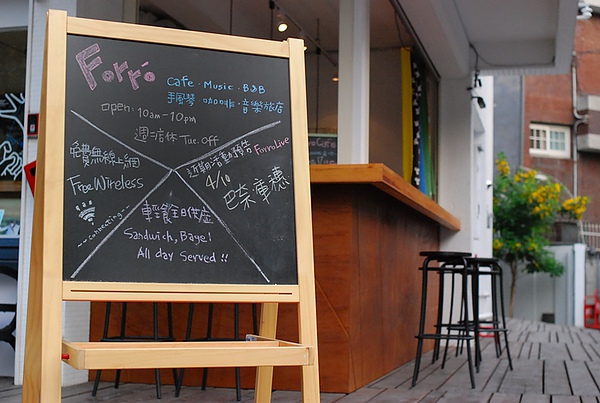 Forró
Cafe · Music · B&B
手風琴 · 咖啡 · 音樂旅店
open · 10am-10pm
週二店休 Tue. off
免費無線上網
Free Wireless
~~connecting~~
近期活動預告
Forro Live
4/10
巴奈庫穗
輕食全日供應
Sandwich, Bagel
All day Served !!